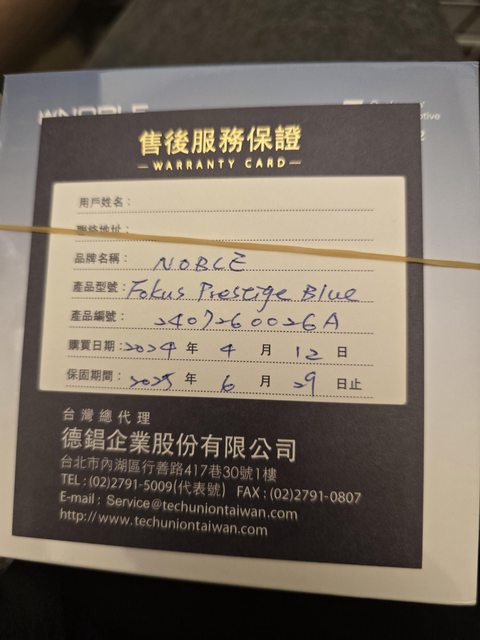 NOBLE
售後服務保證
WARRANTY CARD
用戶姓名：
聯絡地址：
品牌名稱： NOBLE
產品型號： Fokus Prestige Blue
產品編號： 2407260026A
購買日期： 2024 年 4 月 12 日
保固期間： 2025 年 6 月 29 日止
台灣總代理
德錩企業股份有限公司
台北市內湖區行善路417巷30號1樓
TEL : (02)2791-5009(代表號) FAX : (02)2791-0807
E-mail : Service@techuniontaiwan.com
http://www.techuniontaiwan.com